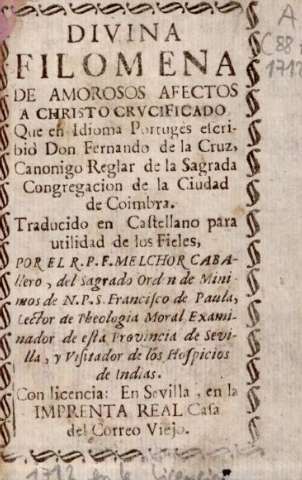 DIVINA
FILOMENA
DE AMOROSOS AFECTOS
A CHRISTO CRVCIFICADO.
Que en Idioma Portuges escri-
biò Don Fernando de la Cruz,
Canonigo Reglar de la Sagrada
Congregacion de la Ciudad
de Coimbra.
Traducido en Castellano para
utilidad de los Fieles,
POR EL R.P.F. MELCHOR CABA-
llero, del Sagrado Orden de Mini-
mos de N.P.S. Francisco de Paula,
Lector de Theologia Moral, Exami-
nador de esta Provincia de Sevi-
lla, y Visitador de los Hospicios
de Indias.
Con licencia: En Sevilla, en la
IMPRENTA REAL Casa
del Correo Viejo.
A
C 88
1712
1712 en la licencia